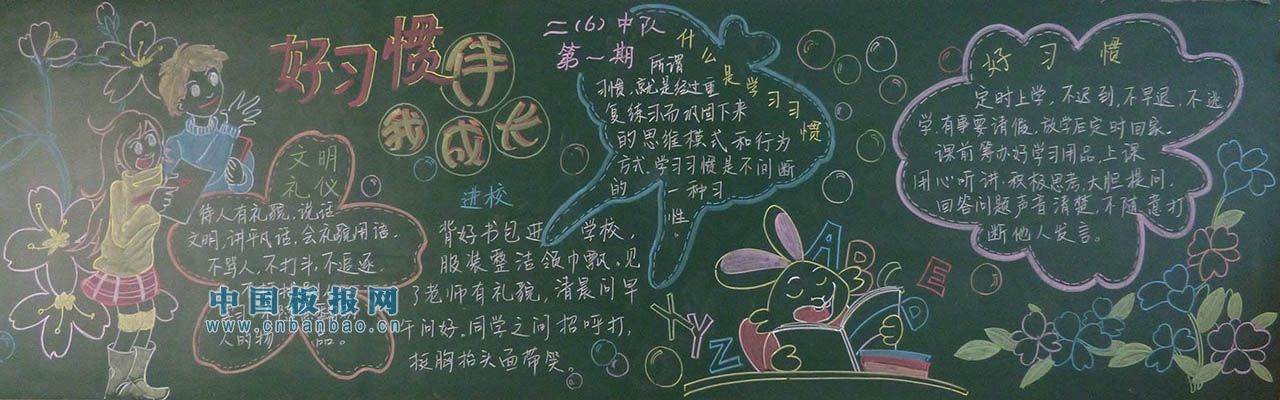 好习惯伴
我成长
二(6)中队
第一期
什么是学习习惯
所谓
习惯,就是经过重
复练习而巩固下来
的思维模式和行为
方式,学习习惯是不间断
的一种习
性。
文明
礼仪
待人有礼貌,说话
文明,讲平凡话,会礼貌用语。
不骂人,不打斗,不追逐
进校
背好书包进学校,
服装整洁领巾飘,见
了老师有礼貌,清晨问早
午问好,同学之间招呼打,
挺胸抬头面带笑。
好习惯
定时上学,不迟到,不早退,不逃
学,有事要请假。放学后定时回家。
课前筹办好学习用品,上课
用心听讲,积极思考,大胆提问,
回答问题声音清楚,不随意打
断他人发言。
ABCDE
XYZ
中国板报网
www.cnbanbao.cn